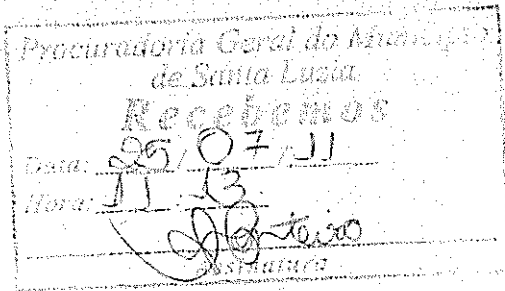 Procuradoria Geral do Município
de Santa Luzia
Recebemos
Data: 25 / 07 / 11
Hora: 11:13
Monteiro
assinatura